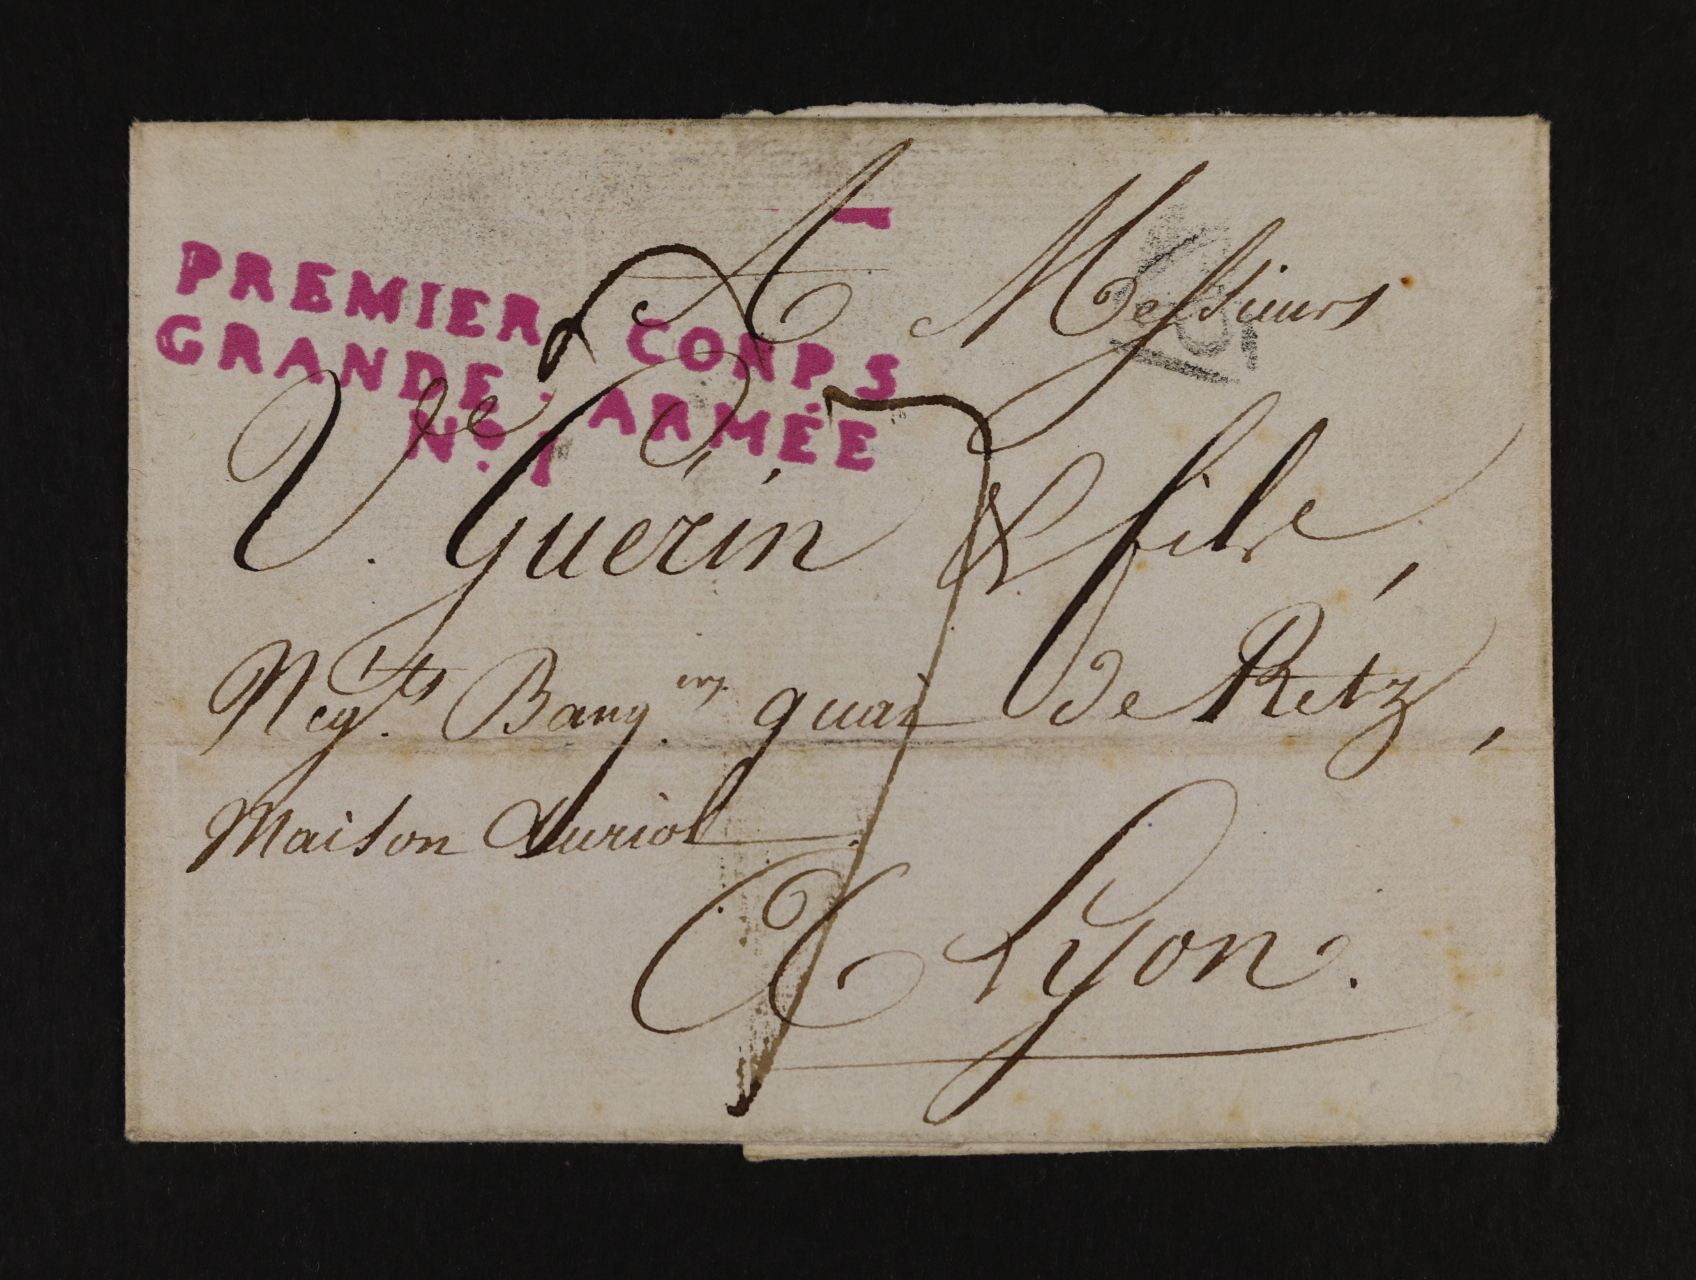 PREMIER CORPS
GRANDE ARMÉE
N° 1
A Messieurs
V.de Guerin & fils,
Neg.ts Banq.ers quai de Retz,
Maison Auriol
A Lyon.